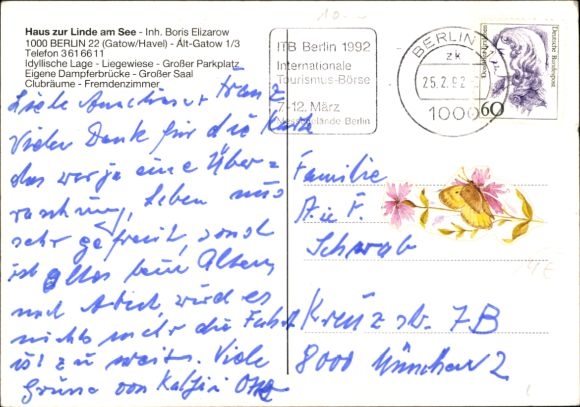 Haus zur Linde am See - Inh. Boris Elizarow
1000 BERLIN 22 (Gatow/Havel) - Alt-Gatow 1/3
Telefon 3616611
Idyllische Lage - Liegewiese - Großer Parkplatz
Eigene Dampferbrücke - Großer Saal
Clubräume - Fremdenzimmer
10.-
ITB Berlin 1992
Internationale
Tourismus-Börse
7-12. März
Messegelände Berlin
BERLIN
zk
25.2.92
1000
Deutsche Bundespost
60
Liebe
Vielen Dank für die Karte
das war ja eine Über=
raschung, haben uns
sehr gefreut, sonst
ist alles beim Alten,
nach wird es
nichts mehr die Fahrt
ist zu weit. Viele
Grüße von
Familie
A. u. F.
Schwab
Kreuzstr. 7B
8000 München 2